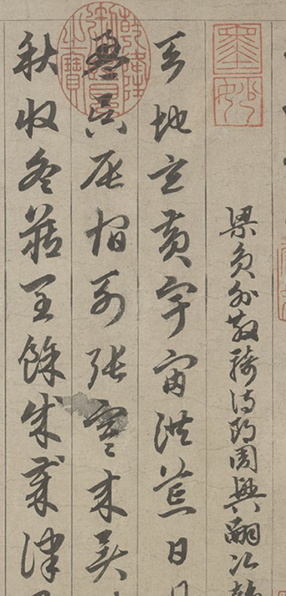 墨
妙
梁員外散騎侍郎周興嗣次韻
天地玄黃宇宙洪荒日月
乾隆御覽之寶
盈昃辰宿列張寒來暑
秋收冬藏閏餘成歲律